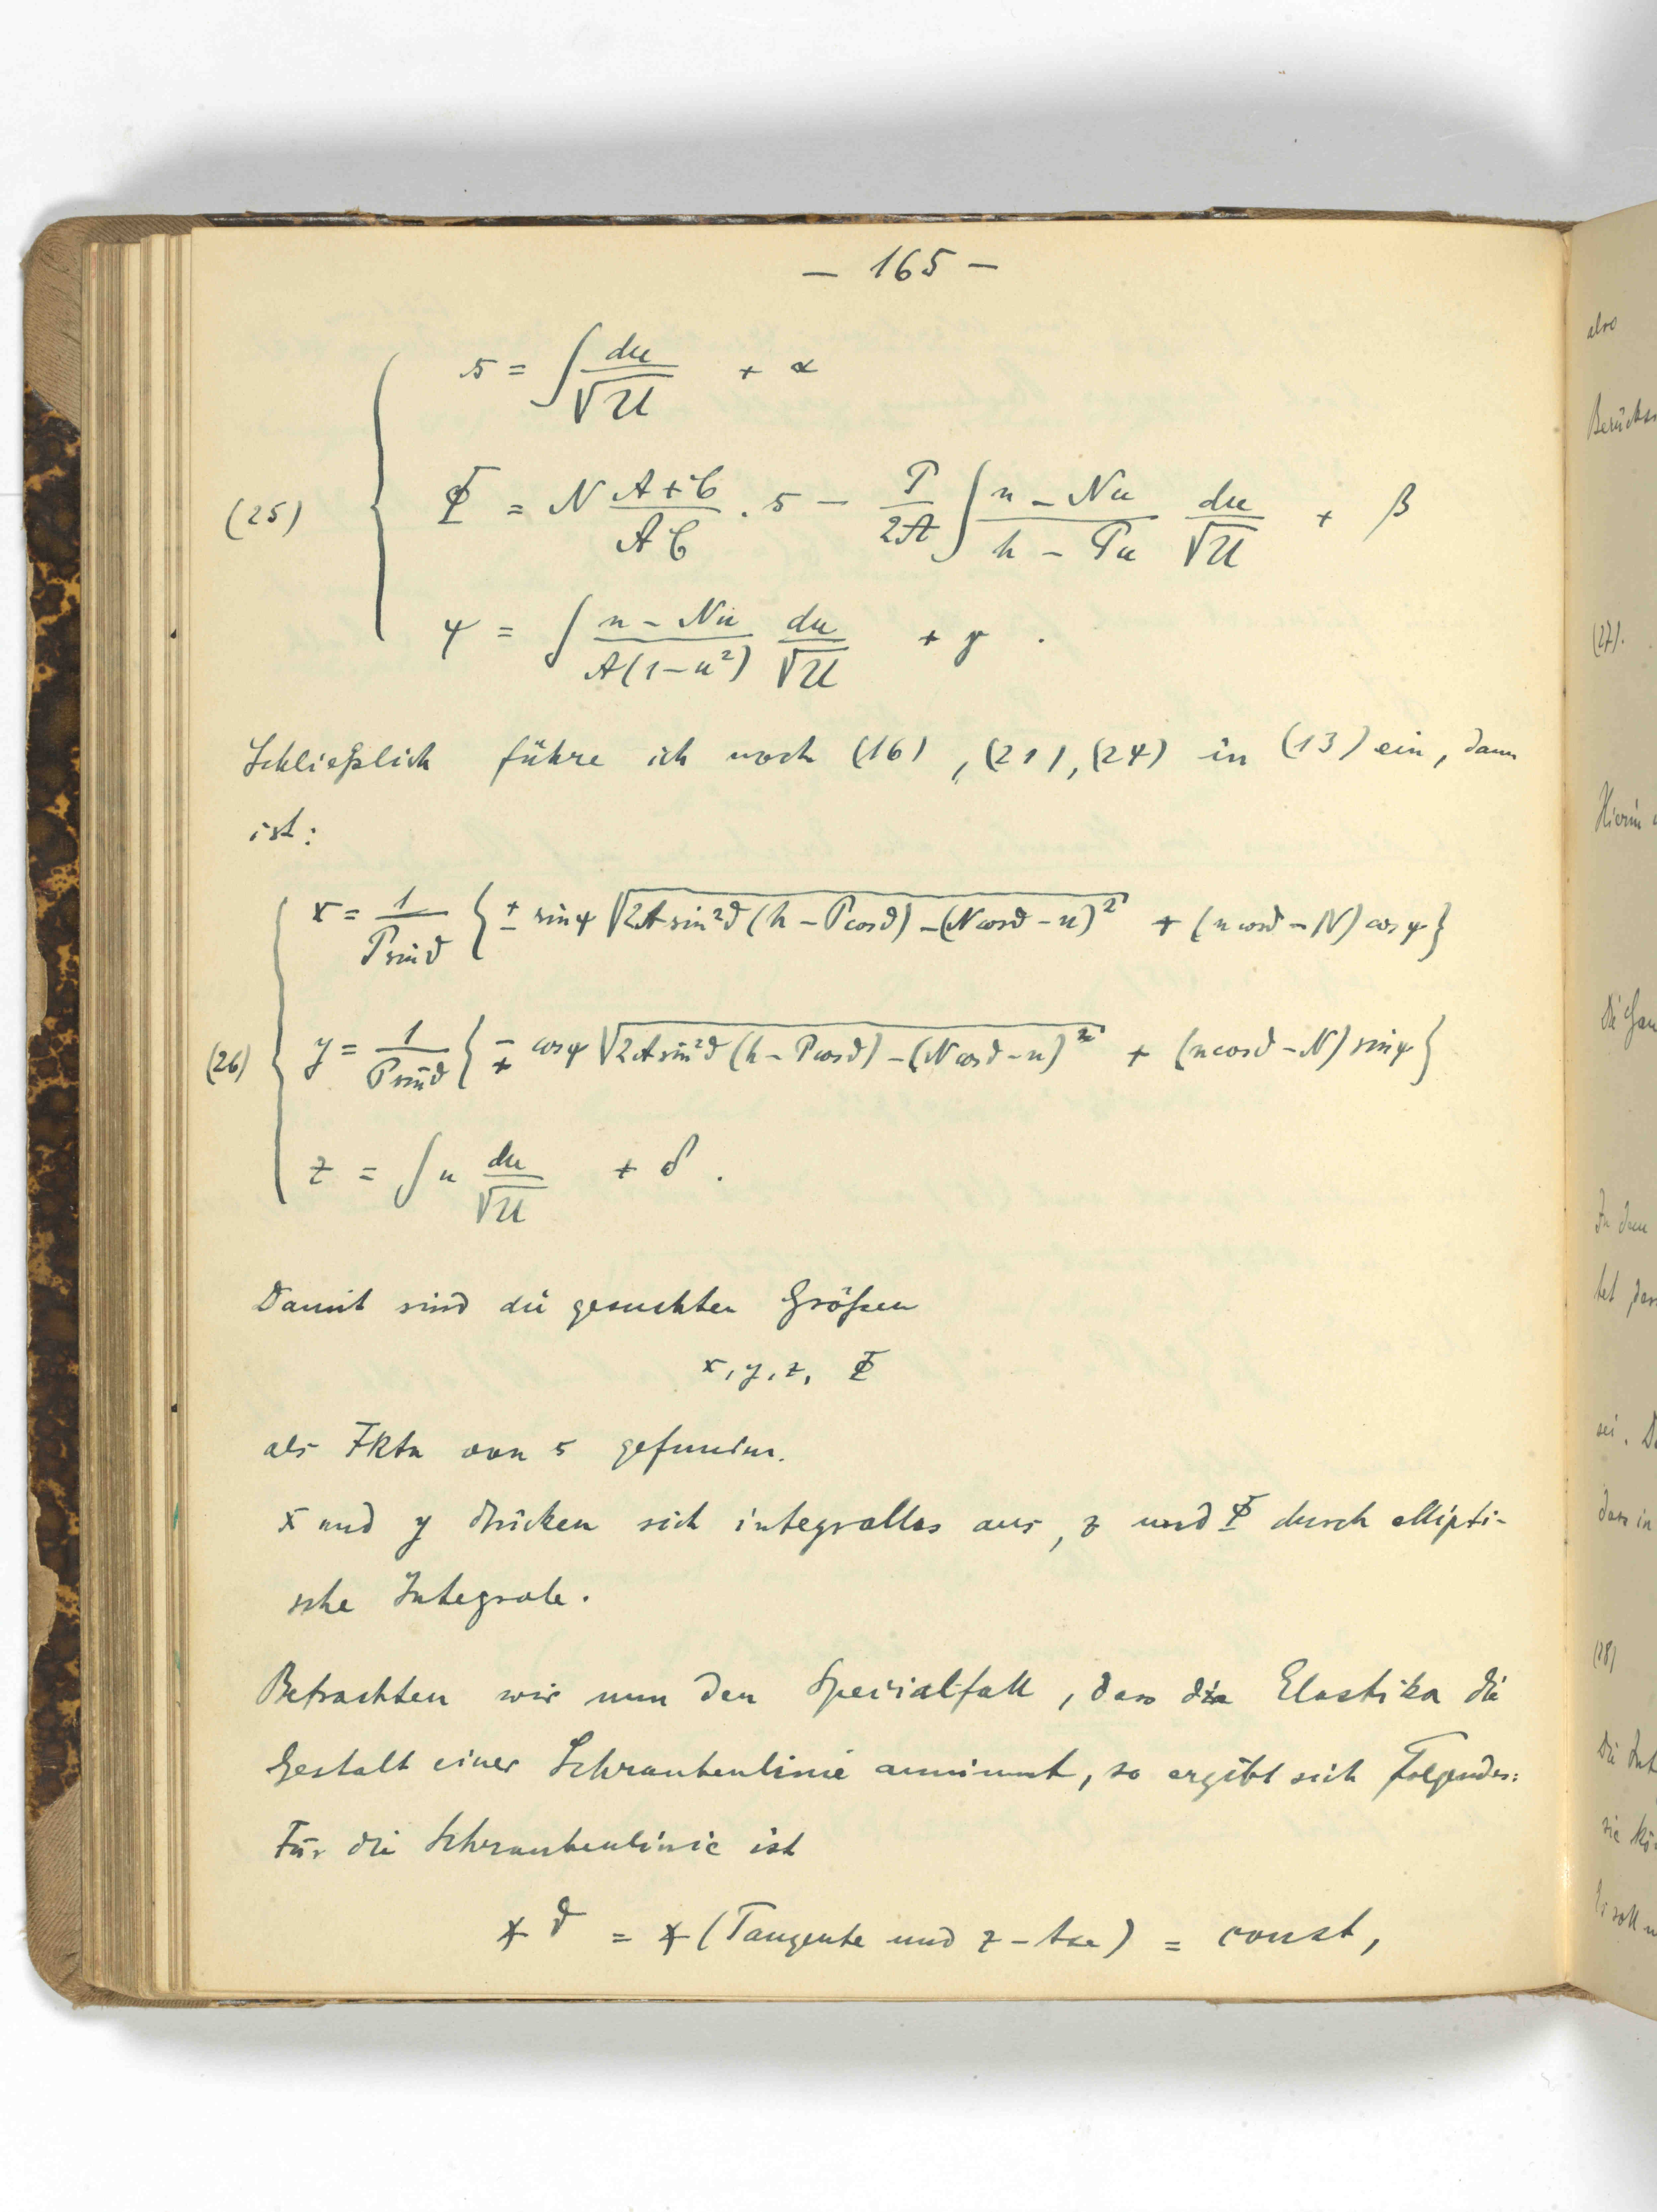 – 165 –
s = ∫ du/√U + α
(25) Φ = N (A+C)/(AC) · s – P/(2A) ∫ (n – Nu)/(h – Pu) du/√U + β
ψ = ∫ (n – Nu)/(A(1–u²)) du/√U + γ .
Schließlich führe ich noch (16), (21), (24) in (13) ein, dann
ist:
x = 1/(P sin ϑ) { ± sin ψ √(2A sin²ϑ (h – P cos ϑ) – (N cos ϑ – n)²) + (n cos ϑ – N) cos ψ }
(26) y = 1/(P sin ϑ) { ∓ cos ψ √(2A sin²ϑ (h – P cos ϑ) – (N cos ϑ – n)²) + (n cos ϑ – N) sin ψ }
z = ∫ u du/√U + δ .
Damit sind die gesuchten Größen
x, y, z, Φ
als Fktn von s gefunden.
x und y drücken sich integrallos aus, z und Φ durch ellipti-
sche Integrale.
Betrachten wir nun den Spezialfall, dass die Elastika die
Gestalt einer Schraubenlinie annimmt, so ergibt sich Folgendes:
Für die Schraubenlinie ist
∢ ϑ = ∢ (Tangente und z – Axe) = const,
also
(27).
Hierin
(28)